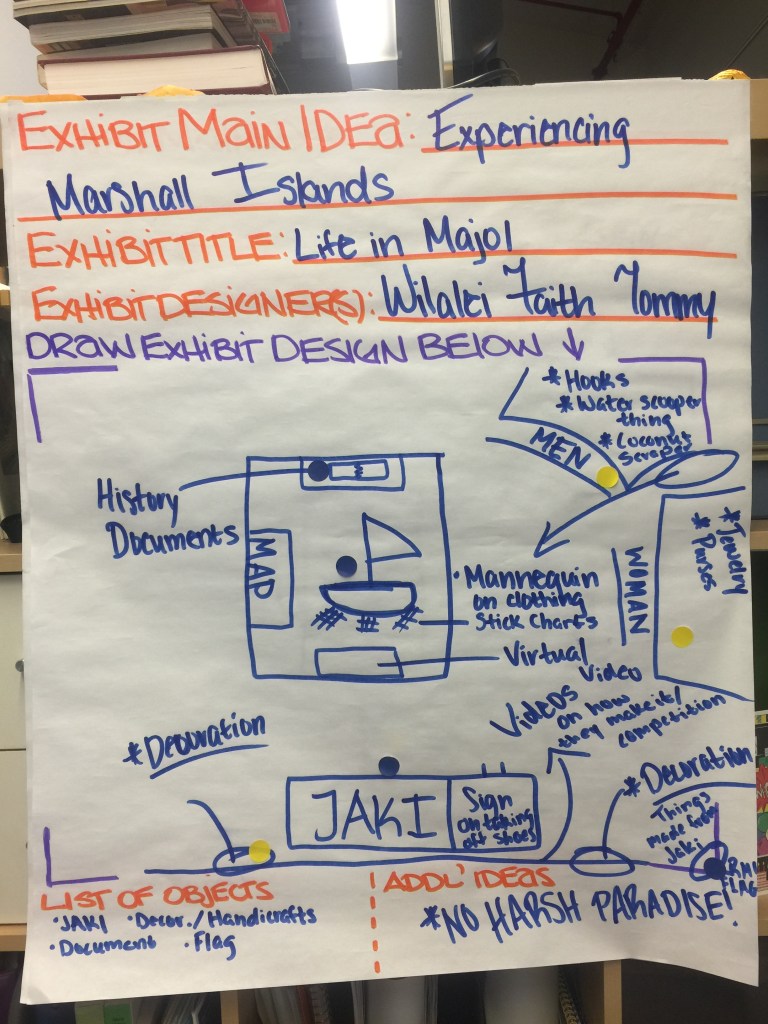 EXHIBIT MAIN IDEA: Experiencing
Marshall Islands
EXHIBIT TITLE: Life in Majol
EXHIBIT DESIGNER(S): Wilalei Faith Tommy
DRAW EXHIBIT DESIGN BELOW ↓
* Hooks
* Water scooper
thing
* Coconut
scraper
MEN
History
Documents
MAP
* Jewelry
* Purses
WOMAN
• Mannequin
on clothing
Stick Charts
Virtual
Video
Videos
on how
they make it/
competition
* Decoration
JAKI
Sign
on taking
off shoes
* Decoration
Things
made from
Jaki
RMI
FLAG
LIST OF OBJECTS
• JAKI • Decor./Handicrafts
• Document • Flag
ADDL' IDEAS
*NO HARSH PARADISE!